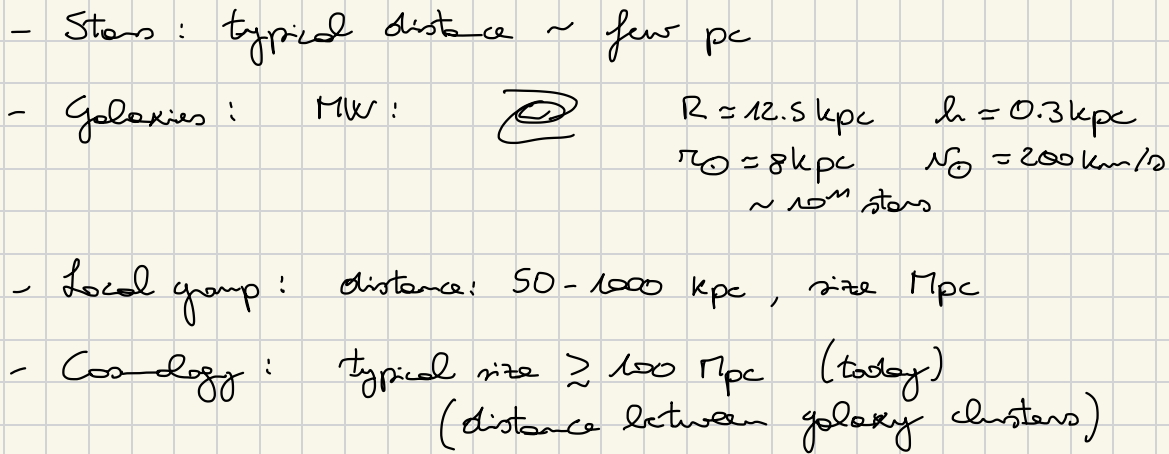 - Stars : typical distance ~ few pc
- Galaxies : MW : R ≃ 12.5 kpc h ≃ 0.3 kpc
r⊙ ≃ 8 kpc v⊙ ≃ 200 km/s
~ 10¹¹ stars
- Local group : distance: 50 - 1000 kpc , size Mpc
- Cosmology : typical size ≳ 100 Mpc (today)
(distance between galaxy clusters)